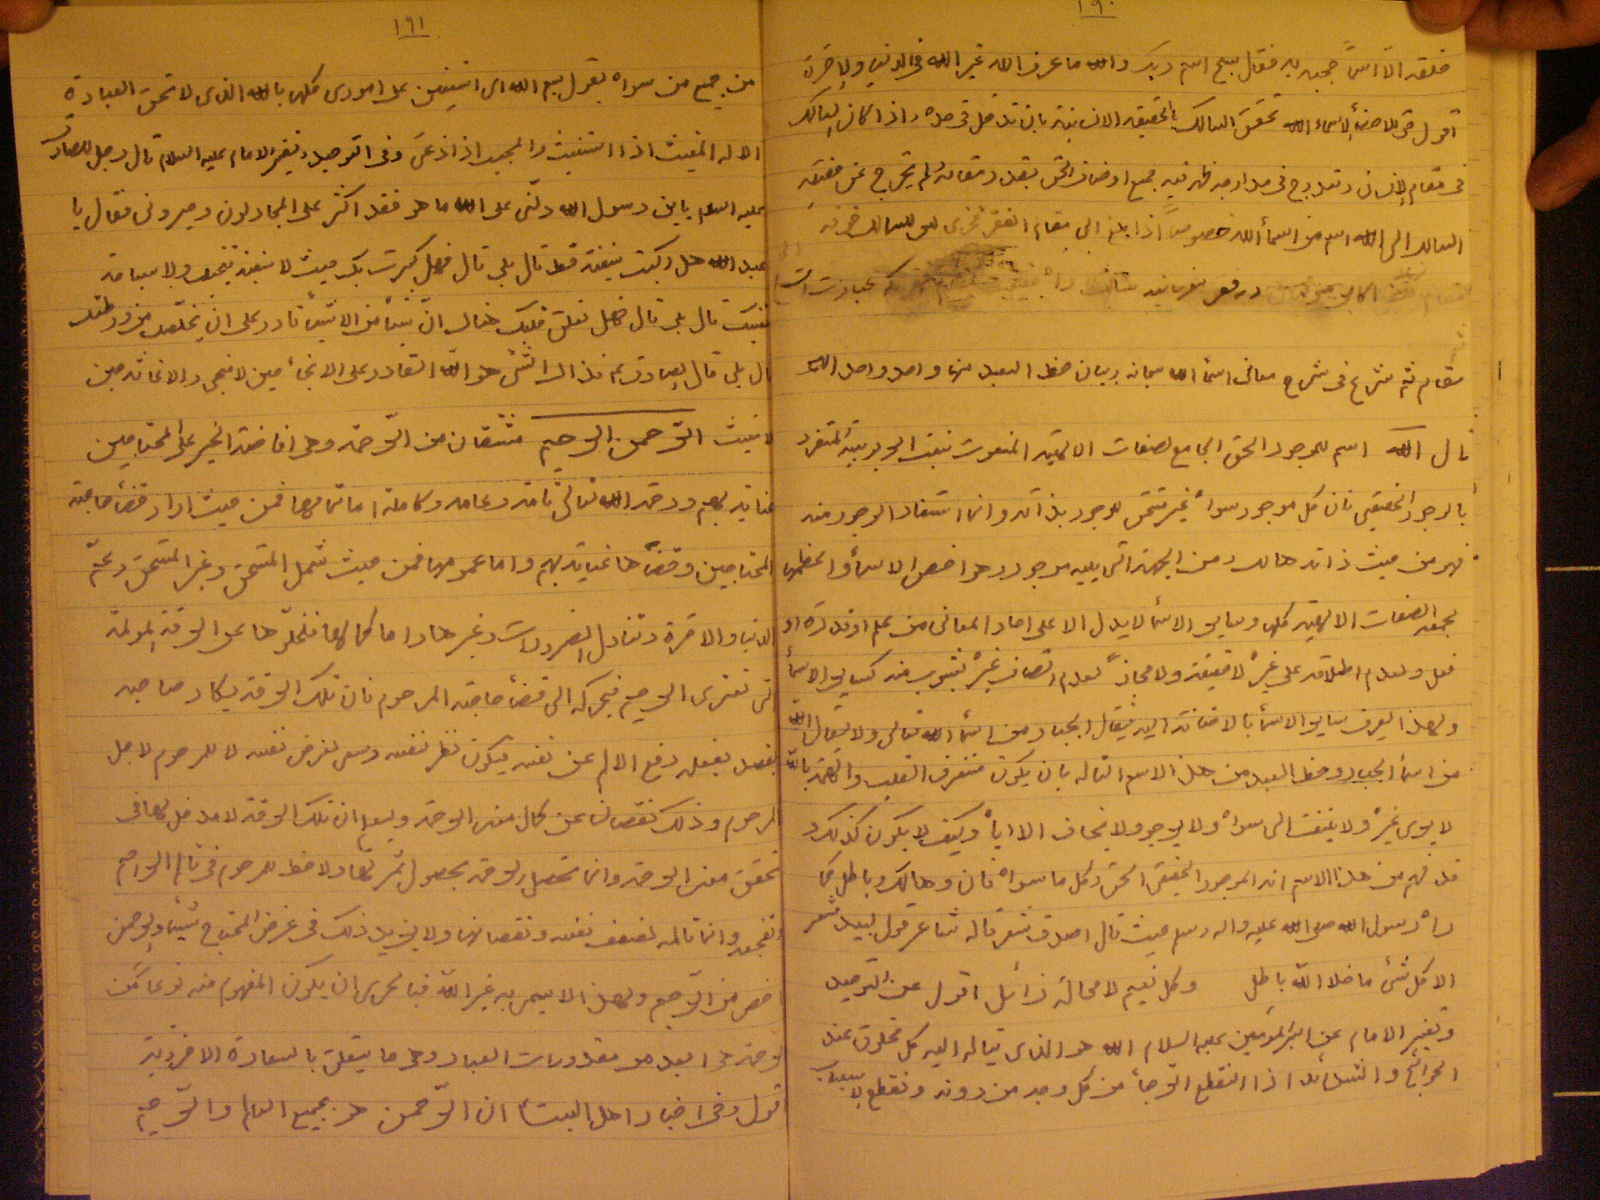 ١٩٠
خلقه الا اسماً حجبه به فقال سبح اسم ربك والله ما عرف الله غير الله فى الدنيا والاخرة
اقول لاسماء الله تحقق السالك بالحقيقة الانسانية بان واذا كان السالك
فى مقام الانسان وتدرج فى مدارجه ظهر فيه جميع اوصاف الحق بقدر مقامه ولم يخرج عن حقيقة
السالك الى الله اسم من اسماء الله خصوصاً اذا بلغ الى مقام الفقر فخرى
در
مقام ثم شرع فى شرح معانى اسماء الله سبحانه وبيان حظ العبد منها واحد واحد الله
قال الله اسم للموجود الحق الجامع لصفات الالهية المنعوت بنعت الربوبية المتفرد
بالوجود الحقيقى فان كل موجود سواه غير مستحق للوجود بذاته وانما استفاد الوجود منه
فهو من حيث ذاته هالك ومن الجهة التى يليه موجود وهو اخص الاسماء واعظمها
بجمعه الصفات الالهية كلها وساير الاسماء لا يدل الا على احاد المعانى من علم او قدرة او
فعل ولعدم اطلاقه على غيره لا حقيقة ولا مجازاً لعدم اتصاف غيره بشوب منه كساير الاسماء
ولهذا يعرف ساير الاسماء بالاضافة اليه فيقال الجبار من اسماء الله تعالى ولا يقال الله
من اسماء الجبار وحظ العبد من هذا الاسم التاله بان يكون مستغرق القلب والهمة بالله
لا يرى غيره ولا يلتفت الى سواه ولا يرجو ولا يخاف الا اياه وكيف لا يكون كذلك و
قد فهم من هذا الاسم انه الموجود الحقيقى الحق وكل ما سواه فان وهالك وباطل كما
راه رسول الله صلى الله عليه واله وسلم حيث قال اصدق شعر قاله شاعر قول لبيد شعر
الا كل شئ ما خلا الله باطل وكل نعيم لا محالة زائل اقول عن التوحيد
وتفسير الامام عن امير المؤمنين عليه السلام الله هو الذى يتاله اليه كل مخلوق عند
الحوائج والشدائد اذا انقطع الرجاء من كل وجه من دونه وتقطع الاسباب
١٩١
من جميع من سواه يقول بسم الله اى استعين على امورى كلها بالله الذى لا تحق العبادة
الا له المغيث اذا استغيث والمجيب اذا دعى وفى التوحيد وتفسير الامام عليه السلام قال رجل للصادق
عليه السلام يابن رسول الله دلنى على الله ما هو فقد اكثر على المجادلون وحيرونى فقال يا
عبد الله هل ركبت سفينة قط قال بلى قال فهل كسرت بك حيث لا سفينة تنجيك ولا سباحة
تغنيك قال بلى قال فهل تعلق قلبك هنالك ان شيئاً من الاشياء قادر على ان يخلصك من ورطتك
قال بلى قال الصادق ع فذلك الشئ هو الله القادر على الانجاء حين لا منجى والاغاثة حين
لا مغيث الرحمن الرحيم مشتقان من الرحمة وهى افاضة الخير على المحتاجين
عناية بهم ورحمة الله تعالى تامة وعامة وكاملة اما تمامها فمن حيث اراد قضاء حاجة
المحتاجين وقضاها عناية بهم واما عمومها فمن حيث شمل المستحق وغير المستحق وعم
الدنيا والاخرة وتناول الضرورات وغيرها واما كمالها فلخلوها عن الرقة المولمة
التى تعترى الرحيم فيحركه الى قضاء حاجة المرحوم فان تلك الرقة يكاد صاحبه
يقصد بفعله دفع الالم عن نفسه فيكون نظر نفسه وسعى لغرض نفسه لا للمرحوم لاجل
المرحوم وذلك نقصان عن كمال معنى الرحمة وليعلم ان تلك الرقة لا مدخل لها فى
تحقق معنى الرحمة وانما تحصل الرحمة بحصول ثمرتها ولا حظ للمرحوم فى تالم الراحم
وتفجعه وانما تالمه لضعف نفسه ونقصانها ولا يزيد ذلك فى غرض المحتاج شيئاً والرحمن
اخص من الرحيم ولهذا لا يسمى به غير الله فبالحرى ان يكون المفهوم منه نوعاً من
الرحمة هى ابعد من مقدورات العباد وهى ما يتعلق بالسعادة الاخروية
اقول وفى اخبار اهل البيت ان الرحمن هو بجميع العالم والرحيم